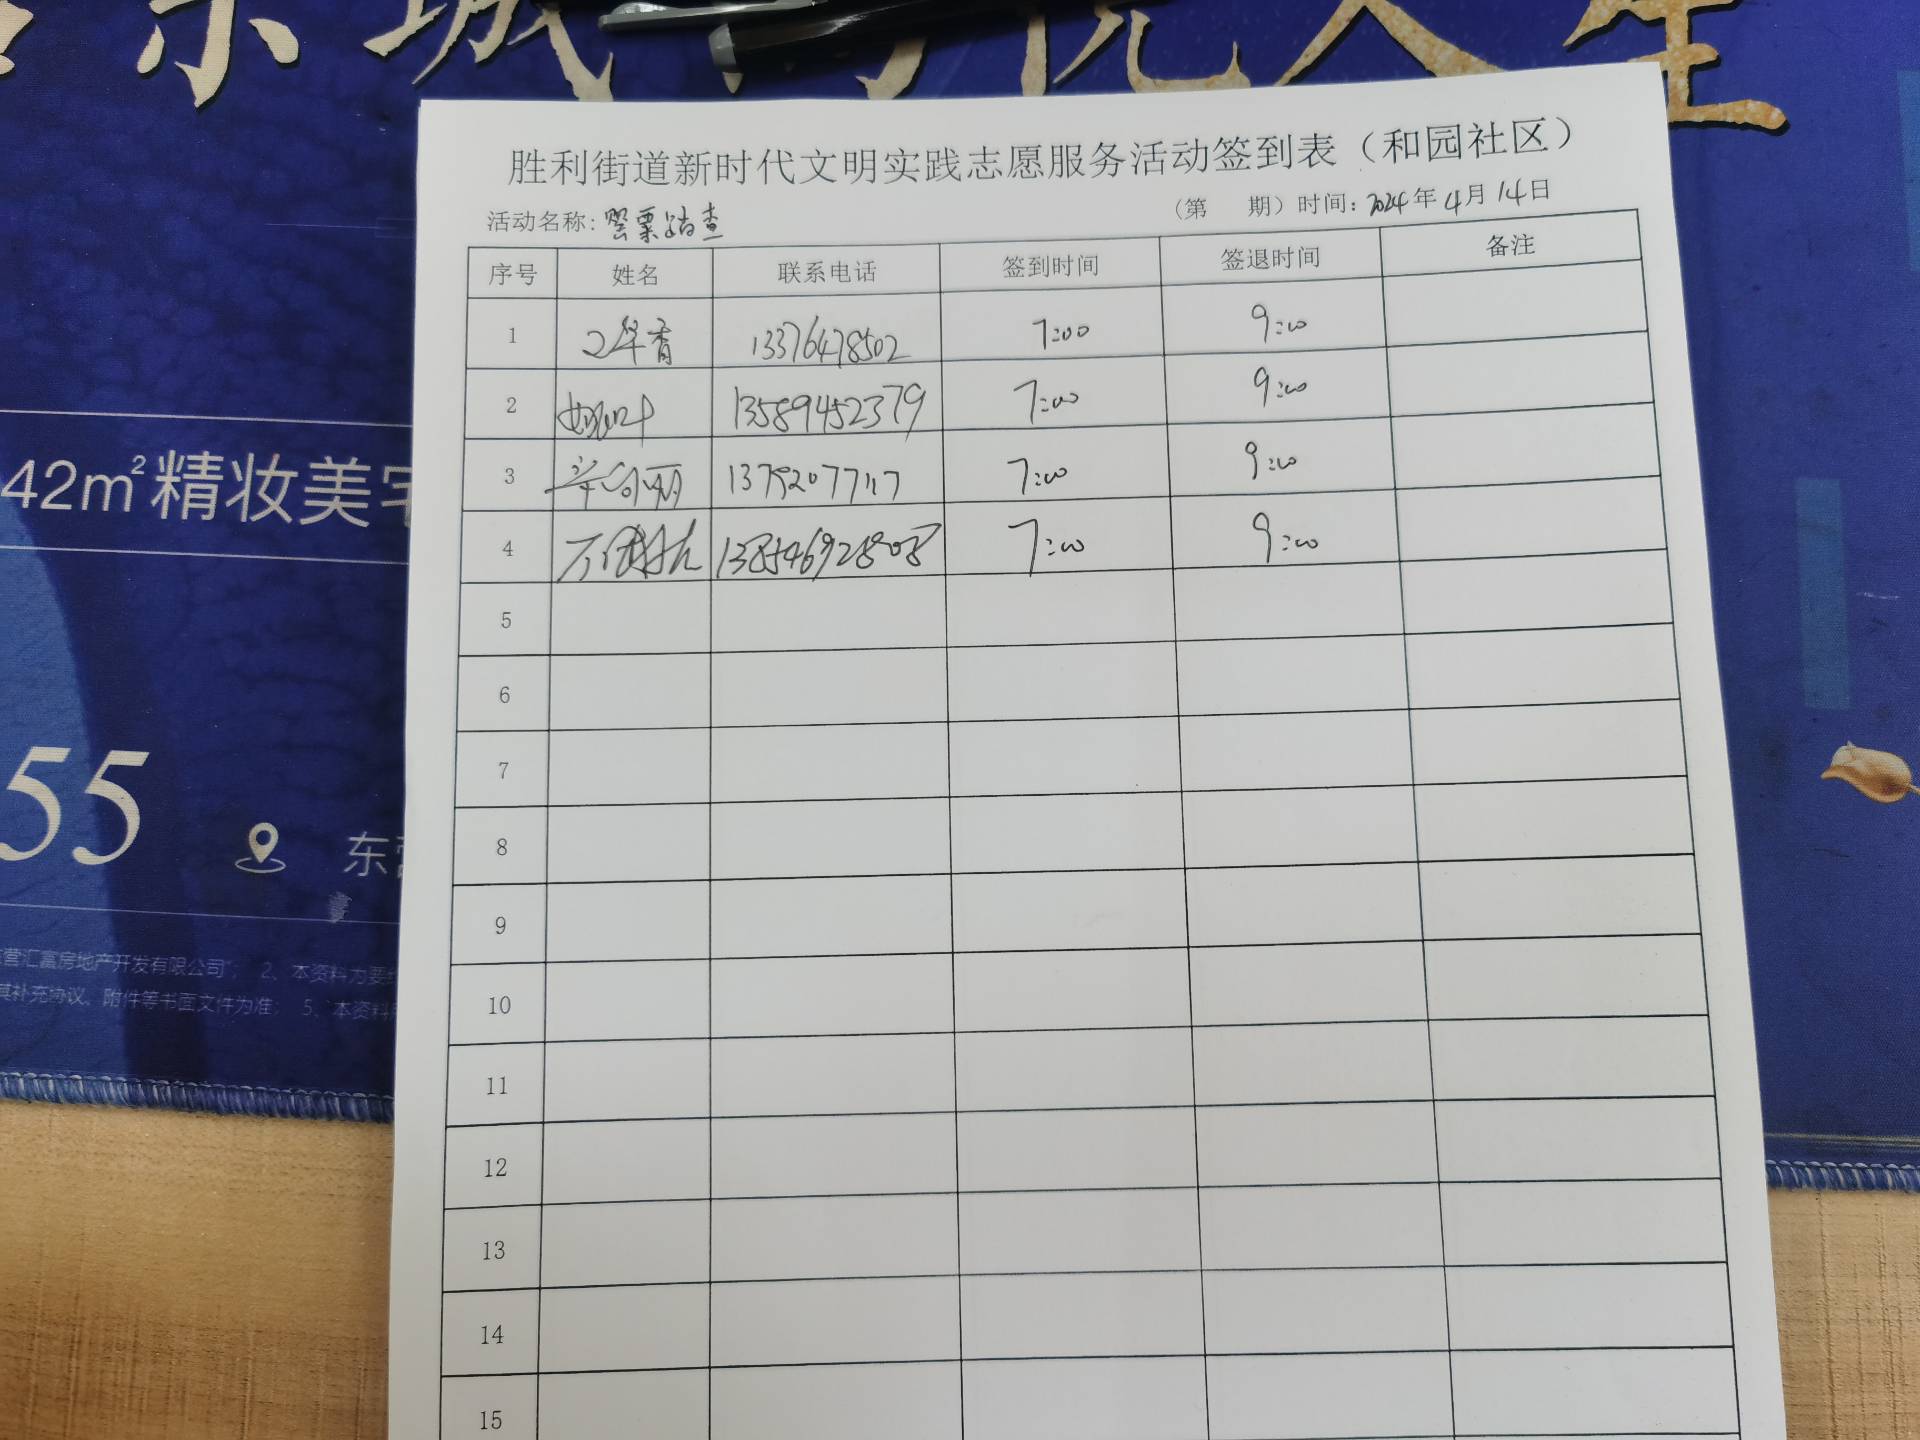 42m²精妆美宅
55
东营
营汇富房地产开发有限公司"; 2、本资料为要约
其补充协议、附件等书面文件为准; 5、本资料
胜利街道新时代文明实践志愿服务活动签到表（和园社区）
活动名称: 罂粟踏查
（第 期）时间: 2024年4月14日
序号 姓名 联系电话 签到时间 签退时间 备注
1 13376478502 7:00 9:00
2 13589452379 7:00 9:00
3 7:00 9:00
4 13854692808 7:00 9:00
5
6
7
8
9
10
11
12
13
14
15